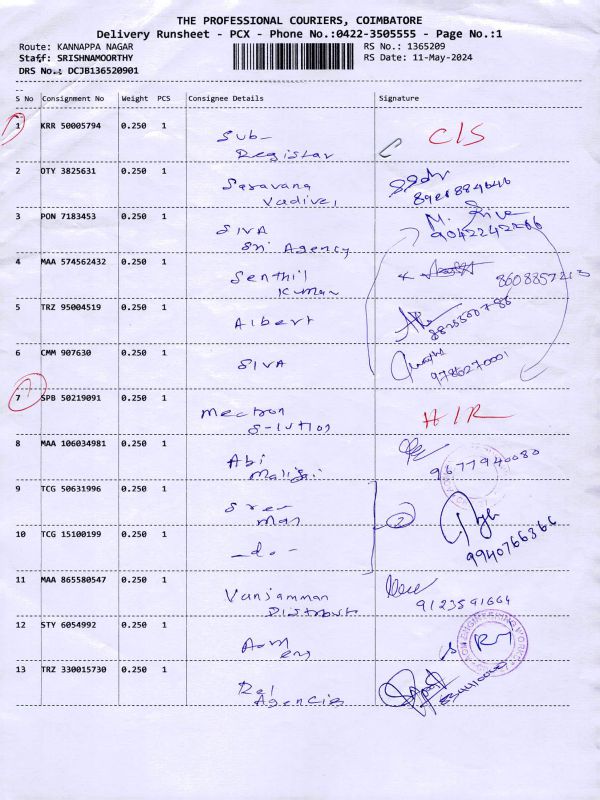 THE PROFESSIONAL COURIERS, COIMBATORE
Delivery Runsheet - PCX - Phone No.:0422-3505555 - Page No.:1
Route: KANNAPPA NAGAR RS No.: 1365209
Staff: SRISHNAMOORTHY RS Date: 11-May-2024
DRS No.: DCJB136520901
S No Consignment No Weight PCS Consignee Details Signature
1 KRR 50005794 0.250 1 Sub- C/S
Registar
2 OTY 3825631 0.250 1 Saravana
Vadivel
3 PON 7183453 0.250 1 SIVA M. Siva
Sri Agency 9042242266
4 MAA 574562432 0.250 1 Senthil
Kumar
5 TRZ 95004519 0.250 1 Albert
6 CMM 907630 0.250 1 SIVA
9786270001
7 SPB 50219091 0.250 1 Mectron H/R
8 MAA 106034981 0.250 1 Abi
9677940080
9 TCG 50631996 0.250 1 Sree
Man 2
10 TCG 15100199 0.250 1 -do-
9940766366
11 MAA 865580547 0.250 1 Vanjamman
9123591664
12 STY 6054992 0.250 1
ENGINEERING WORKS
13 TRZ 330015730 0.250 1
Agencies